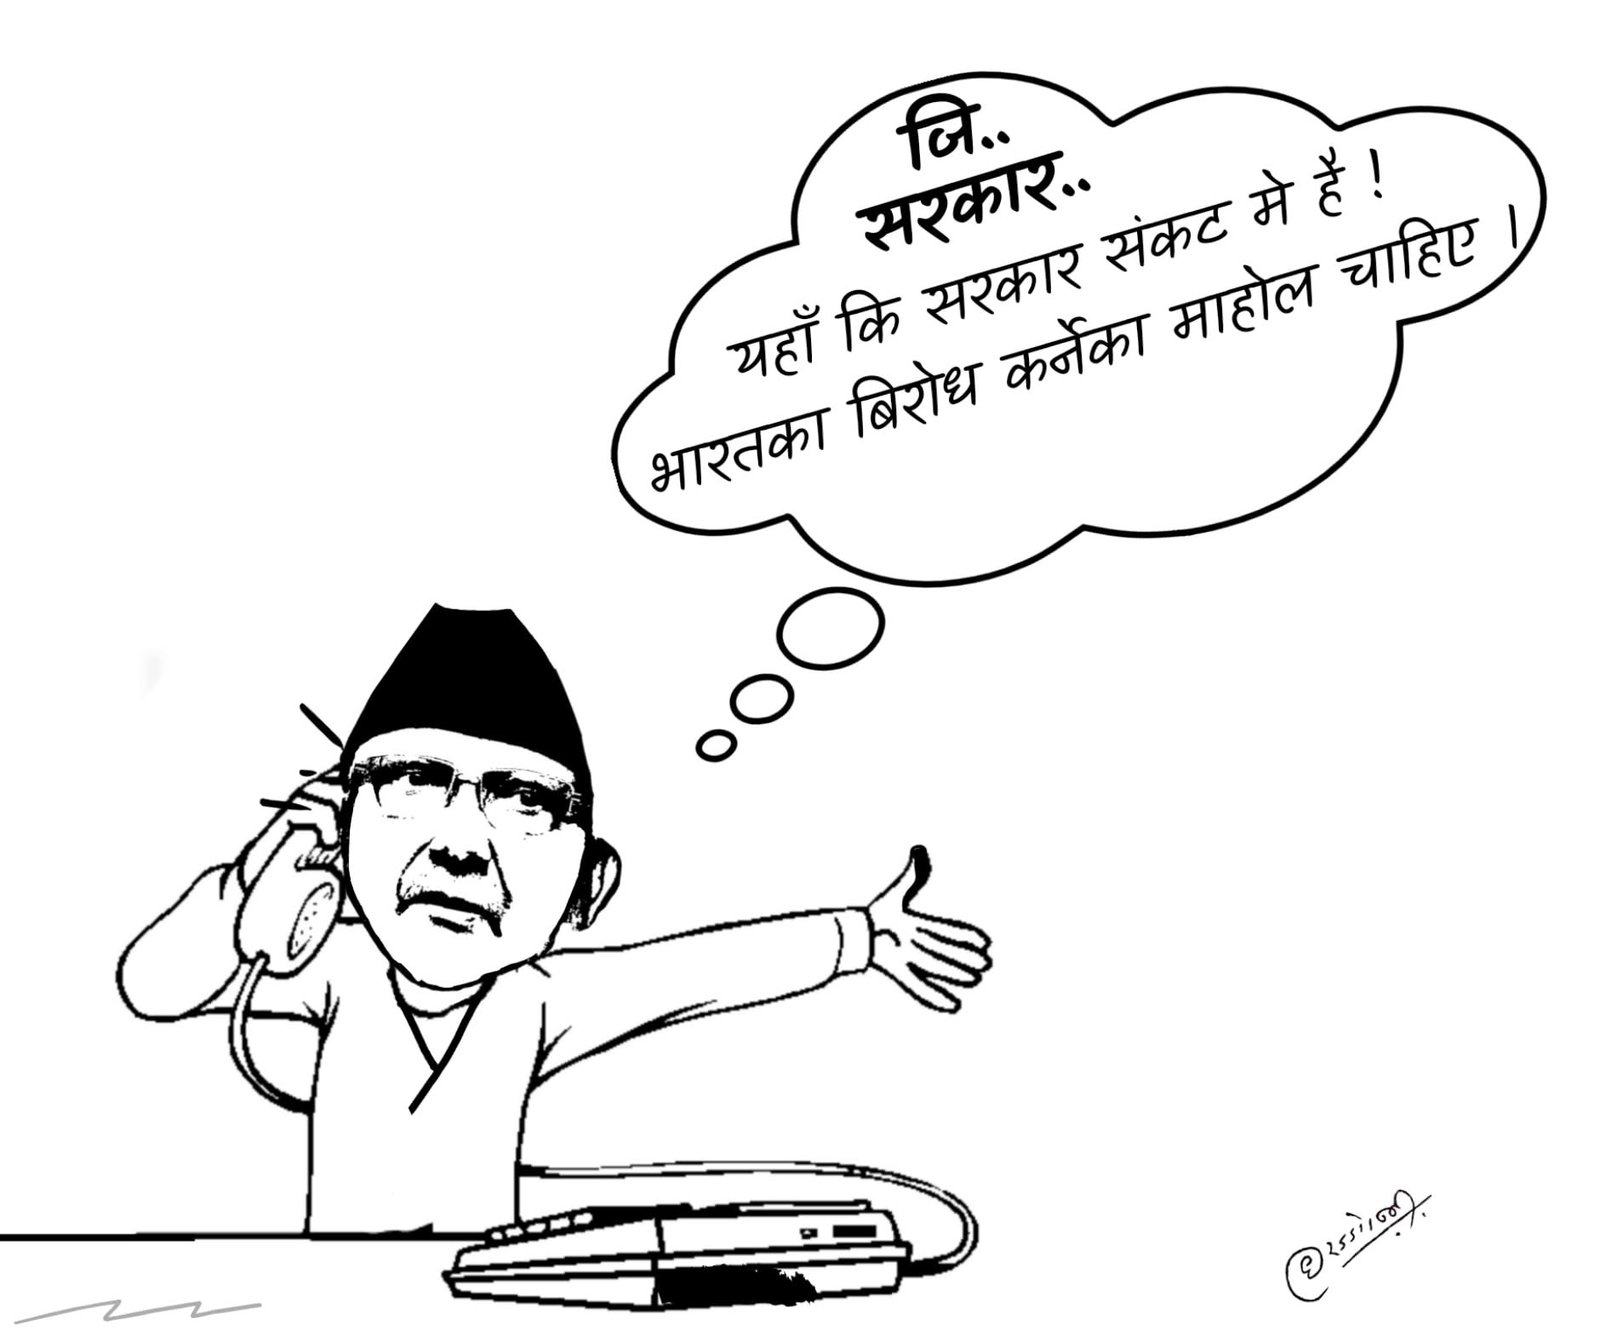 जि..
सरकार..
यहाँ कि सरकार संकट मे है !
भारतका बिरोध कर्नेका माहोल चाहिए ।